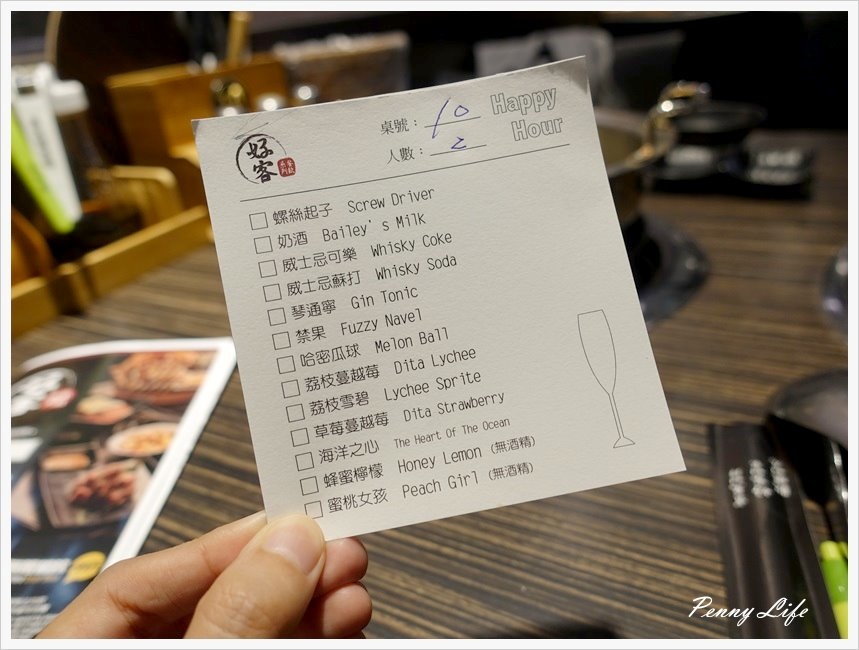 好客
桌號：10
人數：2
Happy
Hour
螺絲起子 Screw Driver
奶酒 Bailey's Milk
威士忌可樂 Whisky Coke
威士忌蘇打 Whisky Soda
琴通寧 Gin Tonic
禁果 Fuzzy Navel
哈密瓜球 Melon Ball
荔枝蔓越莓 Dita Lychee
荔枝雪碧 Lychee Sprite
草莓蔓越莓 Dita Strawberry
海洋之心 The Heart Of The Ocean
蜂蜜檸檬 Honey Lemon (無酒精)
蜜桃女孩 Peach Girl (無酒精)
Penny Life